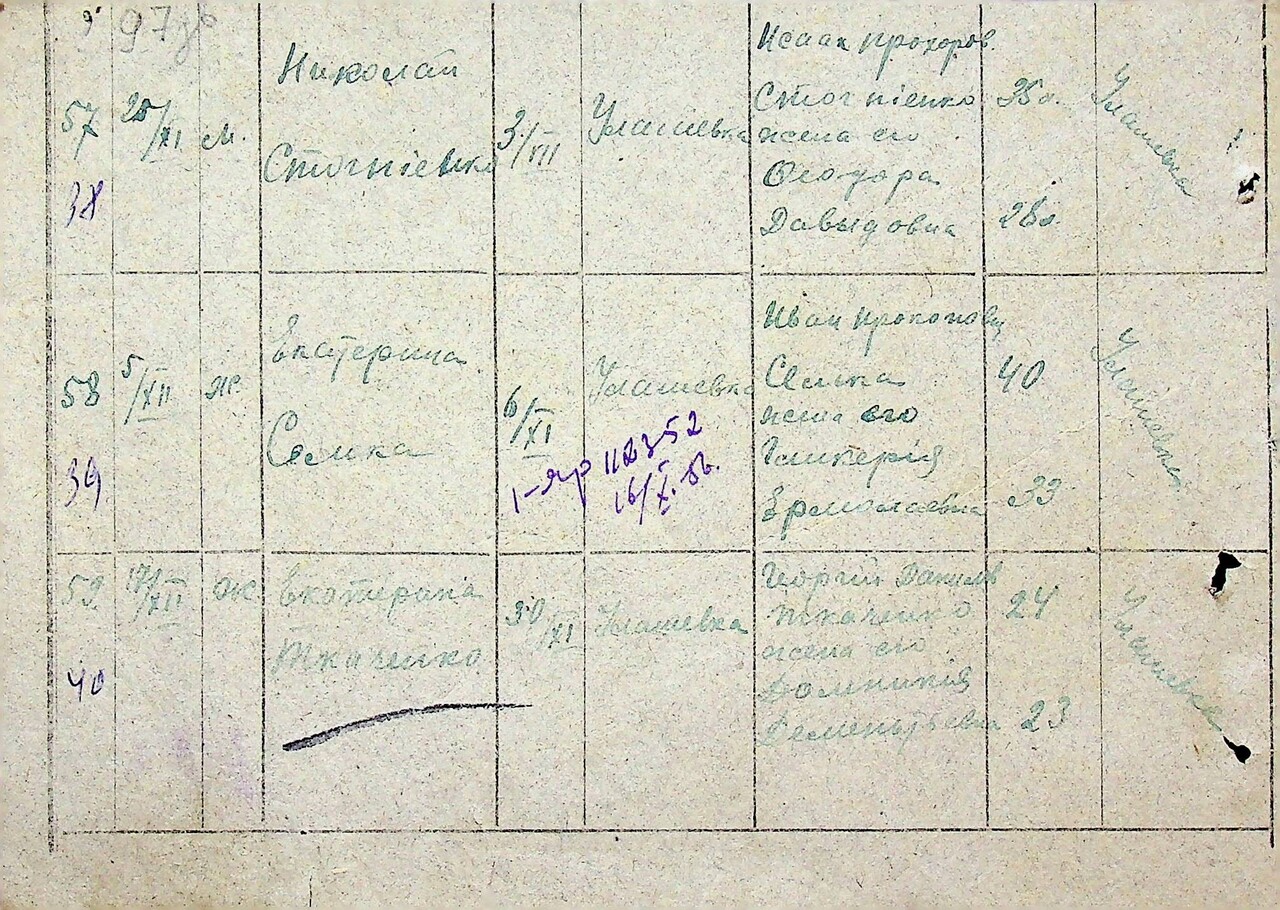 9 97
57 25/XI м. Николай Стогніенко 3/XII Улашевка
Исаак Прохоров.
Стогніенко 35 л.
жена его
Феодора
Давыдовна 28 л.
Улашевка
38
58 5/XII ж. Екатерина Семка 6/XI Улашевка
Иван Прокопович
Семка 40
жена его
Гликерія
Ермолаевна 33
Улашевка
39
16/X.56.
59 XII ж Екатерина Ткаченко 30/XI Улашевка
Георгій Данилов
Ткаченко 24
жена его
Домникія
Дементьевна 23
Улашевка
40